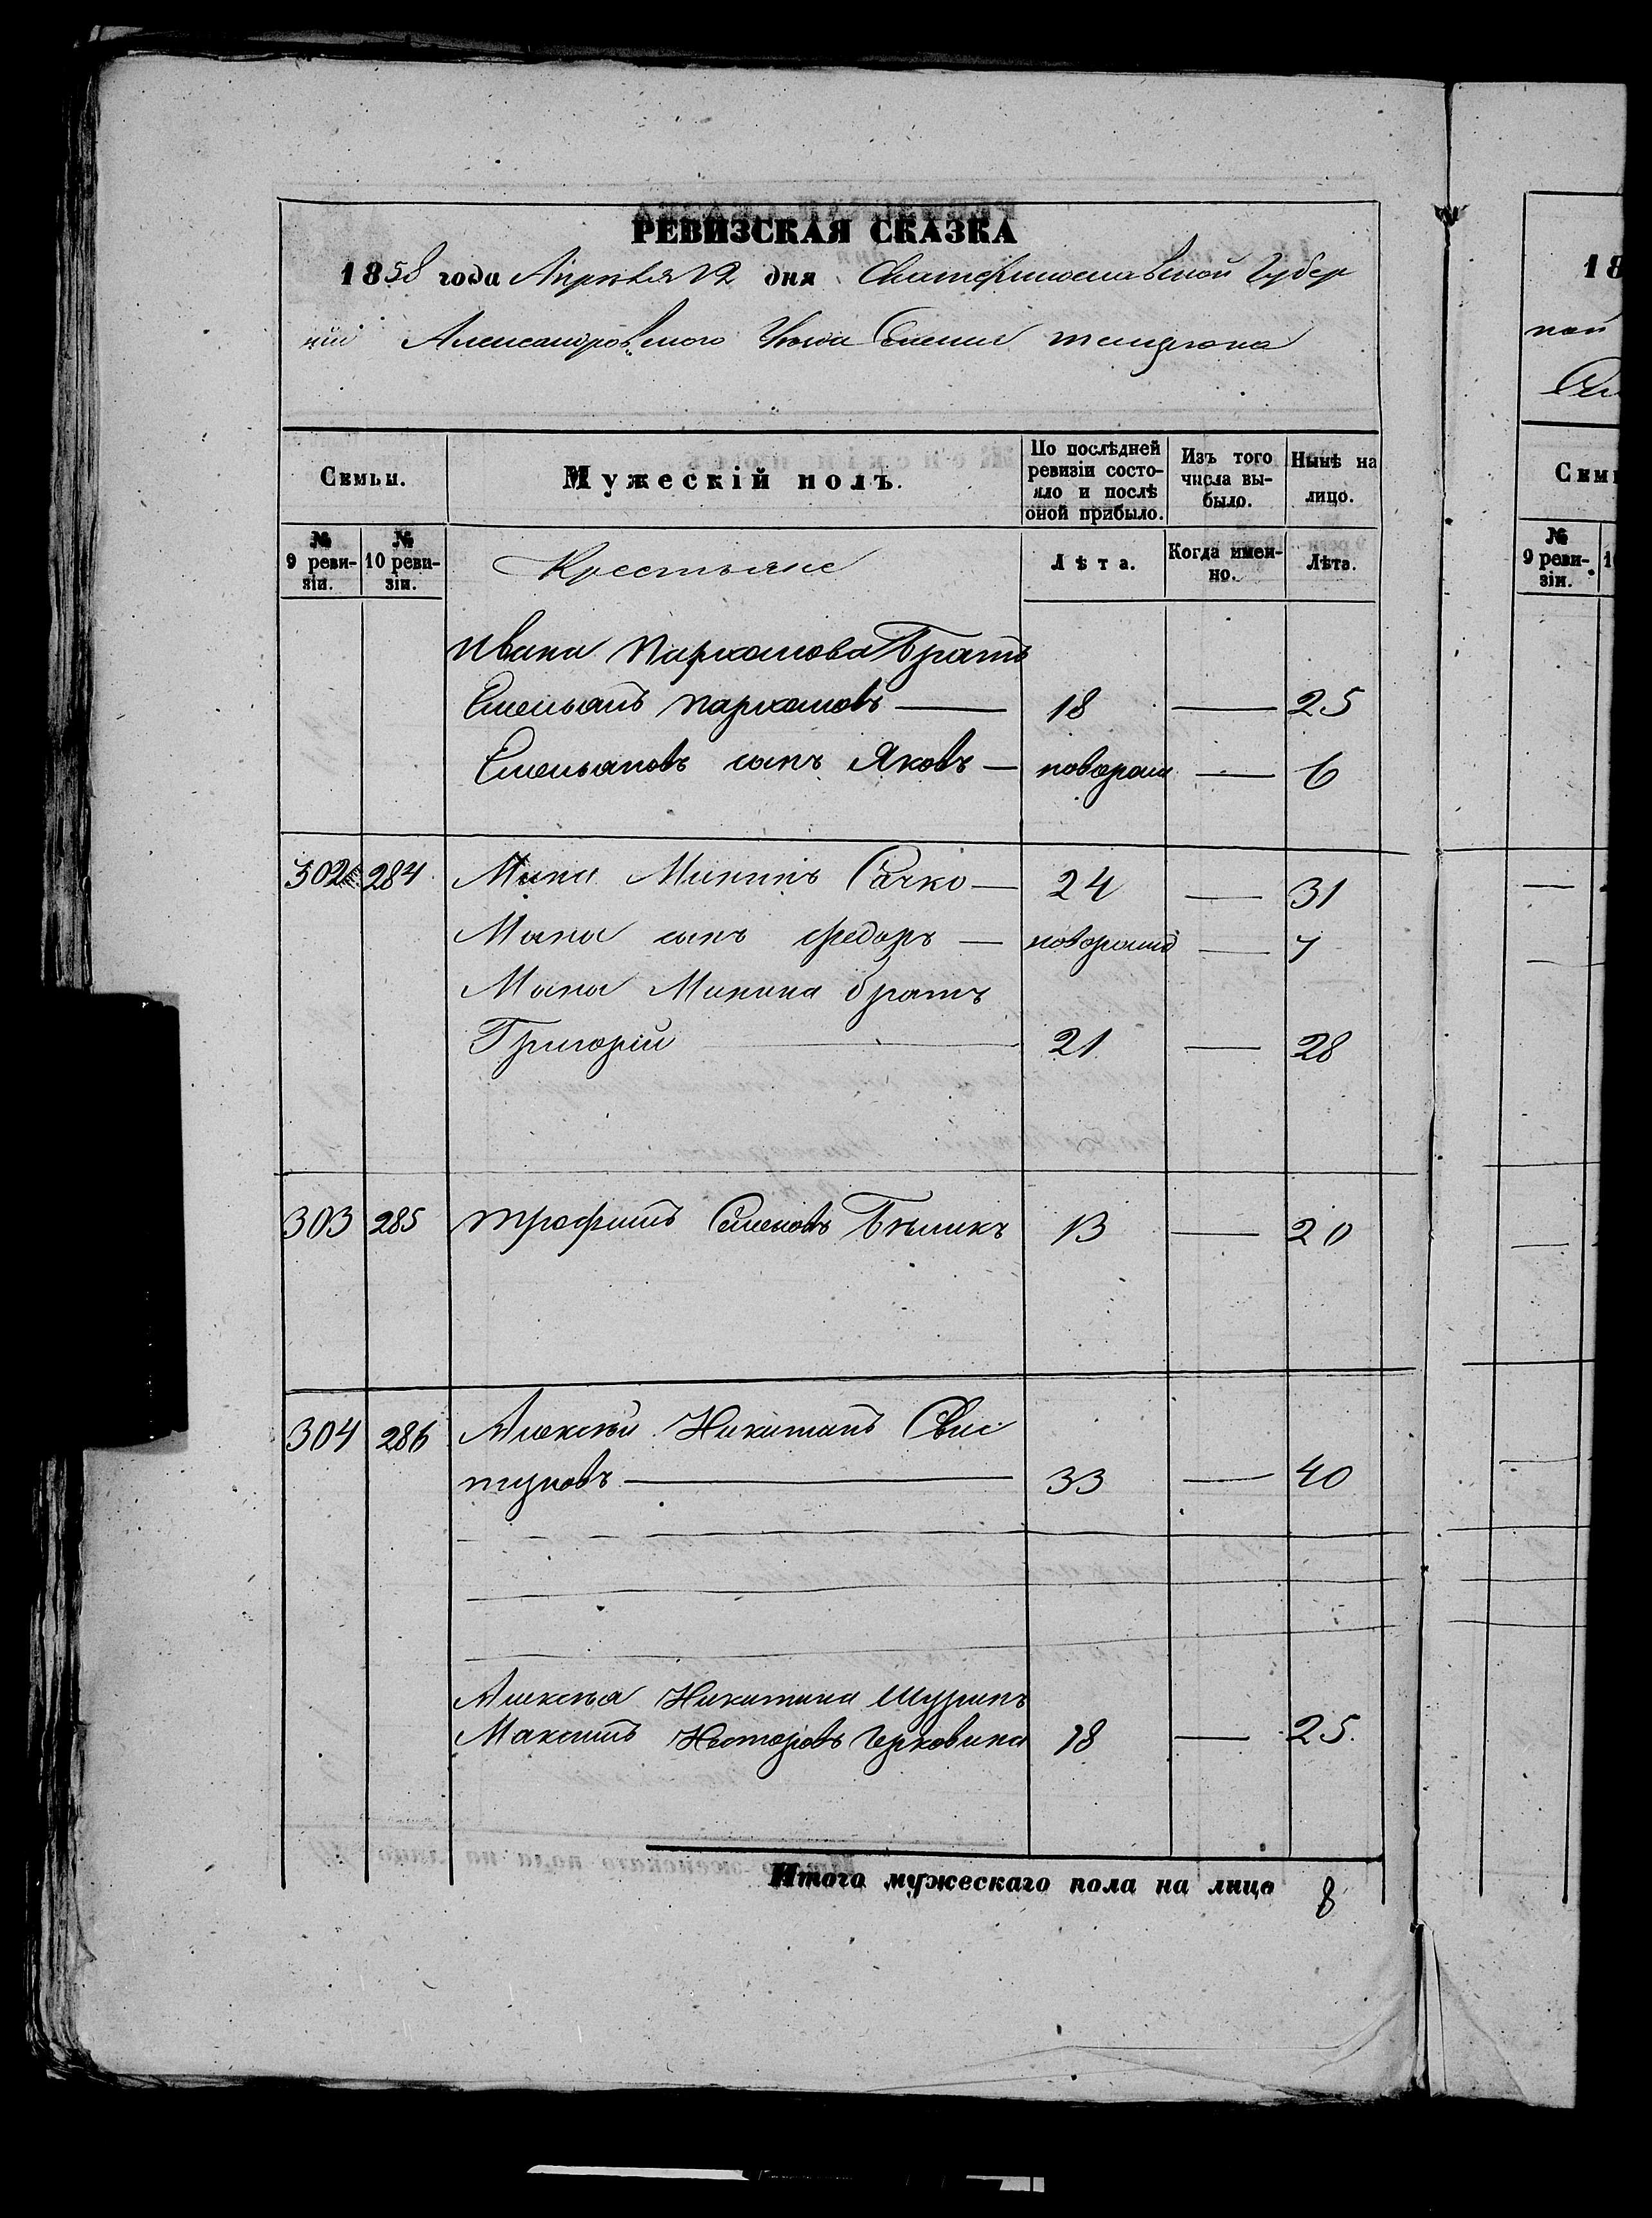 РЕВИЗСКАЯ СКАЗКА
1858 года Апрѣля 12 дня Екатеринославской Губер
ніи Александровскаго Уѣзда Селенія
Семьи.
Мужескій полъ.
По послѣдней ревизіи состо-
яло и послѣ
оной прибыло.
Изъ того
числа вы-
было.
Нынѣ на
лицо.
№
9 реви-
зіи.
№
10 реви-
зіи.
Крестьяне
Лѣта.
Когда имен-
но.
Лѣта.
Ивана Пархомова Братъ
Емельянъ Пархомовъ — 18 — 25
Емельяновъ сынъ Яковъ — новорож — 6
302 284 Мина Мининъ Сачко — 24 — 31
Мины сынъ Федоръ — новорожд — 7
Мины Минина братъ
Григорій — 21 — 28
303 285 Трофимъ Семеновъ Бѣликъ 13 — 20
304 286 Алексѣй Никитинъ Свис
туновъ — 33 — 40
Алексѣя Никитина Шуринъ
Максимъ Несторовъ Черковина 18 — 25.
Итого мужескаго пола на лицо 8
18
Семь
№
9 реви-
зіи.